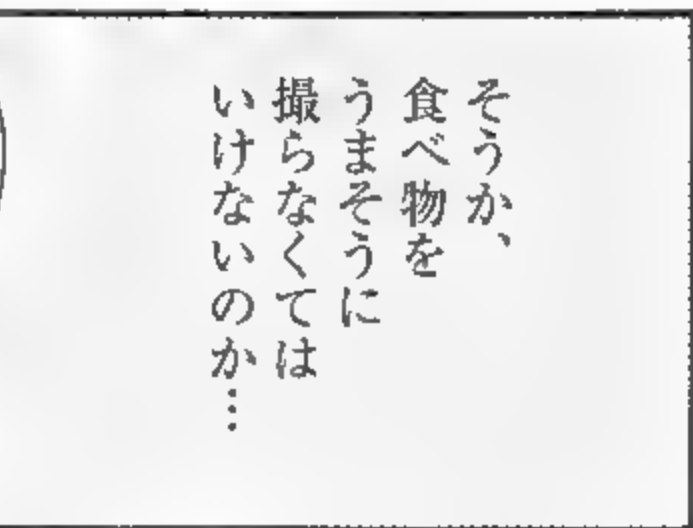 そうか、
食べ物を
うまそうに
撮らなくては
いけないのか…